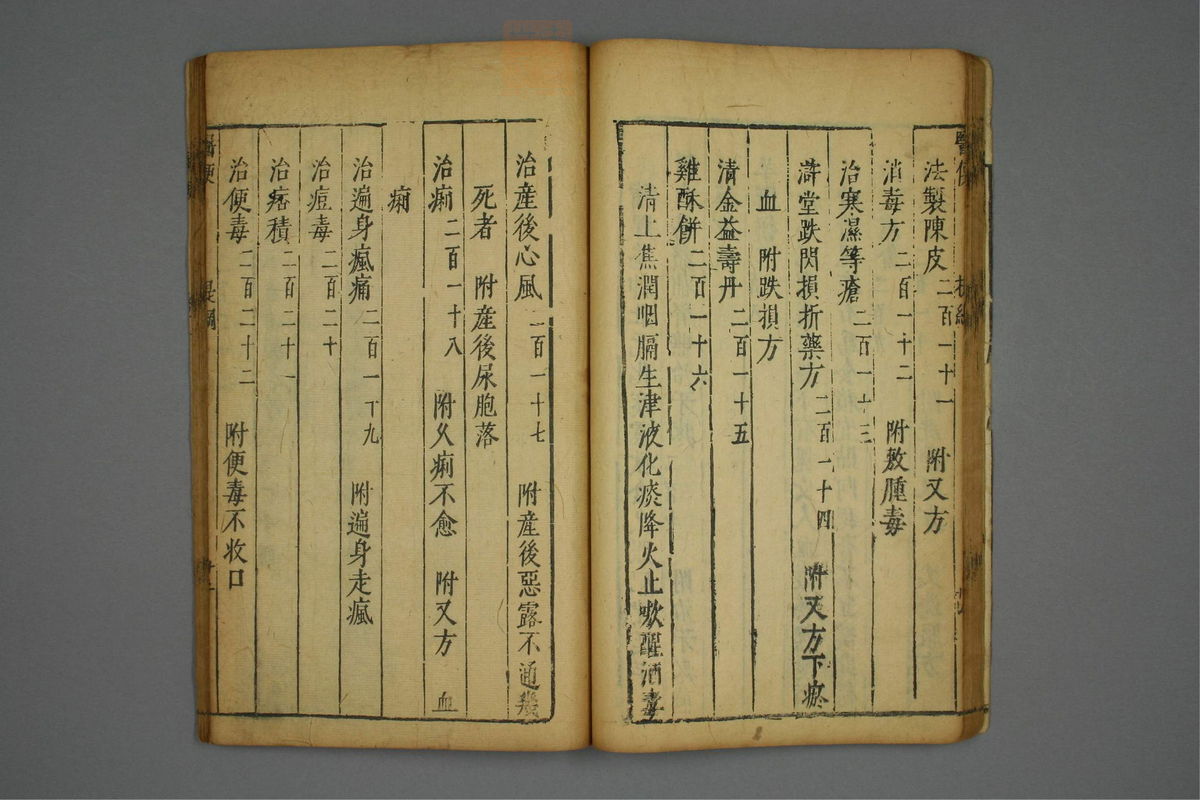 醫便 提綱
法製陳皮 二百一十一 附又方
消毒方 二百一十二 附敷腫毒
治寒濕等瘡 二百一十三
滸堂跌閃損折藥方 二百一十四 附又方下瘀
血 附跌損方
清金益壽丹 二百一十五
雞酥餅 二百一十六
清上焦潤咽膈生津液化痰降火止嗽醒酒毒
治產後心風 二百一十七 附產後惡露不通幾
死者 附產後尿胞落
治痢 二百一十八 附久痢不愈 附又方 血
痢
治遍身瘋痛 二百一十九 附遍身走瘋
治痘毒 二百二十
治痞積 二百二十一
治便毒 二百二十二 附便毒不收口
醫便 提綱